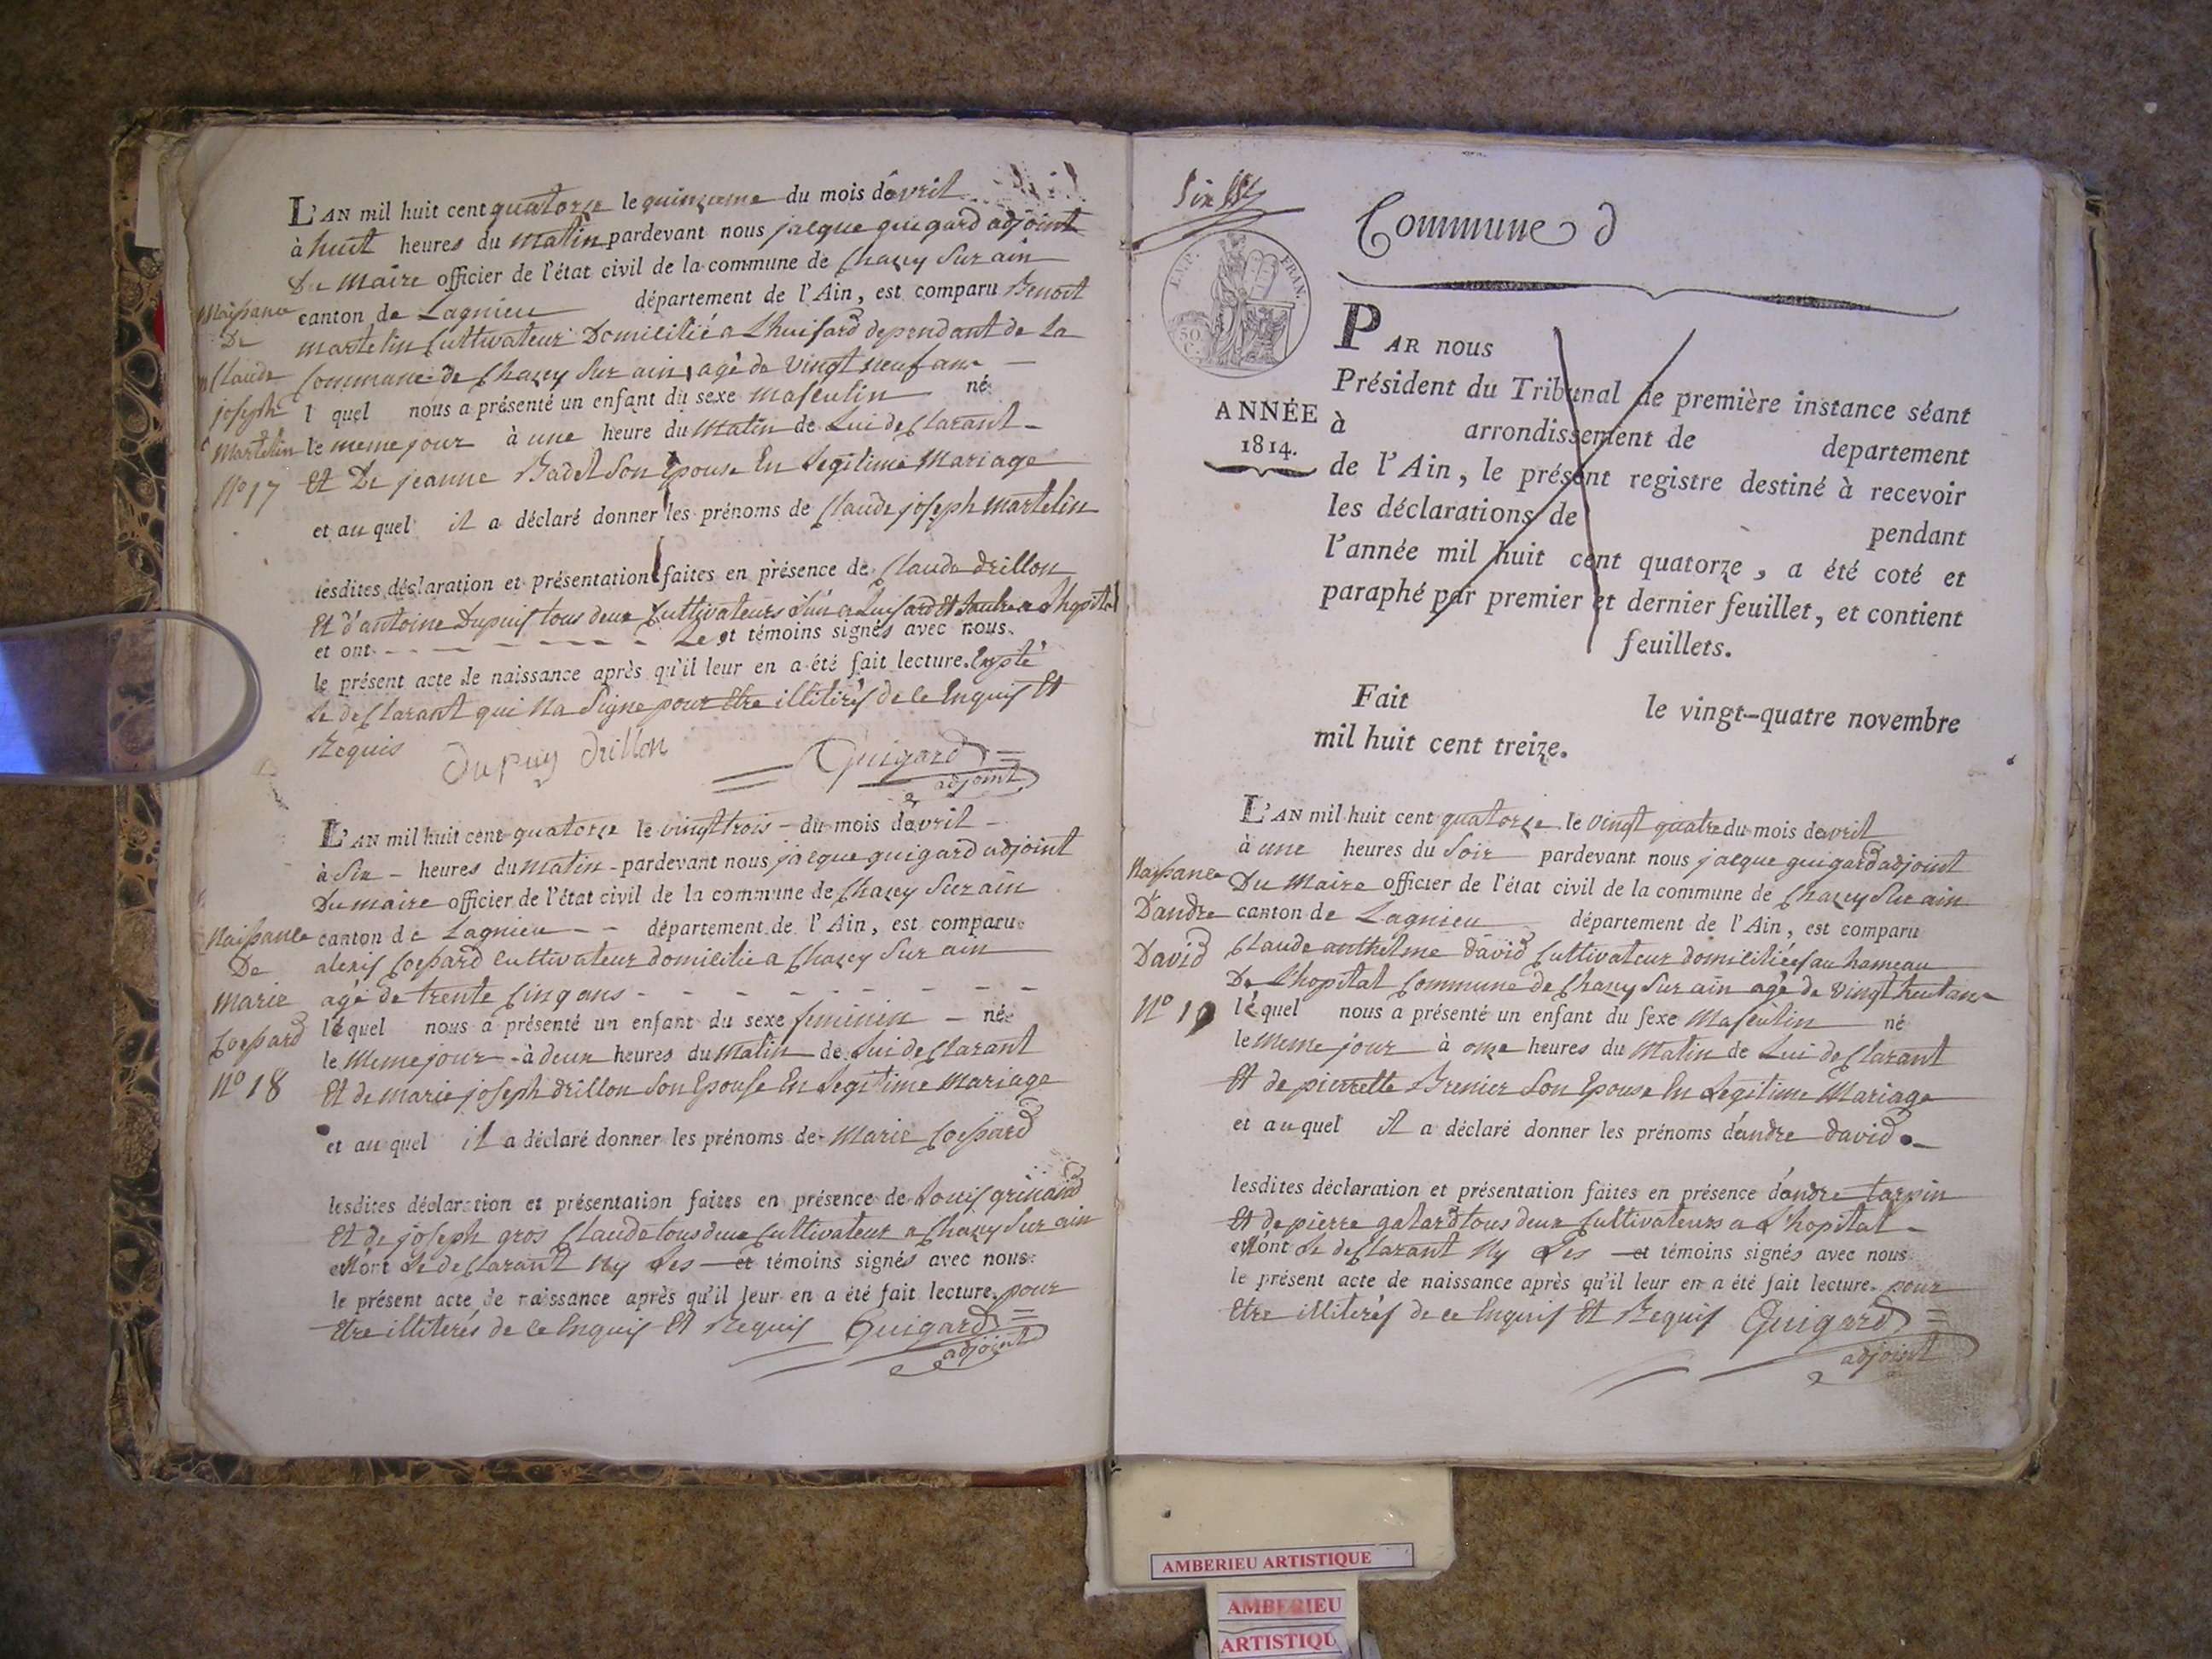 L'AN mil huit cent quatorze le quinzieme du mois d'avril
à huit heures du matin pardevant nous jacque guigard adjoint
Du Maire officier de l'état civil de la commune de Chazey Sur ain
canton de Lagnieu département de l'Ain, est comparu Benoit
martelin Cultivateur Domicilié a Lhuisard dependant de la
Commune de Chazey Sur ain, agé de vingt neuf ans
Naissance
De
Claude
joseph
Martelin
N° 17
l quel nous a présenté un enfant du sexe masculin né
le meme jour à une heure du matin de Lui declarant
Et De jeanne Badet Son Epouse En Legitime Mariage
et au quel il a déclaré donner les prénoms de Claude joseph martelin
lesdites déclaration et présentation faites en présence de Claude drillon
Et d'antoine Dupuis tous deux Cultivateurs
et ont Les et témoins signés avec nous
le présent acte de naissance après qu'il leur en a été fait lecture.
Le declarant qui Na Signe pour Etre illitirés de ce Enquis Et
Requis
dupuy drillon
Guigard
adjoint
L'AN mil huit cent quatorze le vingt trois du mois davril
à Six heures du matin pardevant nous jacque guigard adjoint
Du maire officier de l'état civil de la commune de Chazey Sur ain
canton de Lagnieu département de l'Ain, est comparu
alexis Coessard cultivateur domicilié a Chazey Sur ain
agé de trente Cinq ans
Naissance
De
Marie
Coessard
N° 18
léquel nous a présenté un enfant du sexe feminin né
le Meme jour à deux heures du Matin de Lui declarant
Et de marie joseph drillon Son Epouse En Legitime Mariage
et au quel il a déclaré donner les prénoms de Marie Coessard
lesdites déclaration et présentation faites en présence de Louis grinand
Et de joseph gros Claude tous deux Cultivateur a Chazey Sur ain
ont Le declarant Ny Les et témoins signés avec nous
le présent acte de naissance après qu'il leur en a été fait lecture. pour
Etre illiterés de ce Enquis Et Requis
Guigard
adjoint
Commune d
FRAN.
50
C.
ANNÉE
1814.
PAR nous
Président du Tribunal de première instance séant
à arrondissement de departement
de l'Ain, le présent registre destiné à recevoir
les déclarations de pendant
l'année mil huit cent quatorze, a été coté et
paraphé par premier et dernier feuillet, et contient
feuillets.
Fait le vingt-quatre novembre
mil huit cent treize.
L'AN mil huit cent quatorze le vingt quatre du mois davril
à une heures du Soir pardevant nous jacque guigard adjoint
Du Maire officier de l'état civil de la commune de Chazey Sur ain
canton de Lagnieu département de l'Ain, est comparu
Claude anthelme david Cultivateur domicilié au hameau
De Lhopital Commune de Chazey Sur ain agé de vingt huit ans
Naissance
D'andre
David
N° 19
léquel nous a présenté un enfant du sexe Masculin né
le Meme jour à onze heures du Matin de Lui declarant
Et de pierrette Brenier Son Epouse En Legitime Mariage
et au quel il a déclaré donner les prénoms d'andre david
lesdites déclaration et présentation faites en présence d'andre tarpin
Et de pierre galard tous deux Cultivateurs a L'hopital
ont Le declarant Ny Les et témoins signés avec nous
le présent acte de naissance après qu'il leur en a été fait lecture. pour
Etre illiterés de ce Enquis Et Requis
Guigard
adjoint
AMBERIEU ARTISTIQUE
AMBERIEU
ARTISTIQU